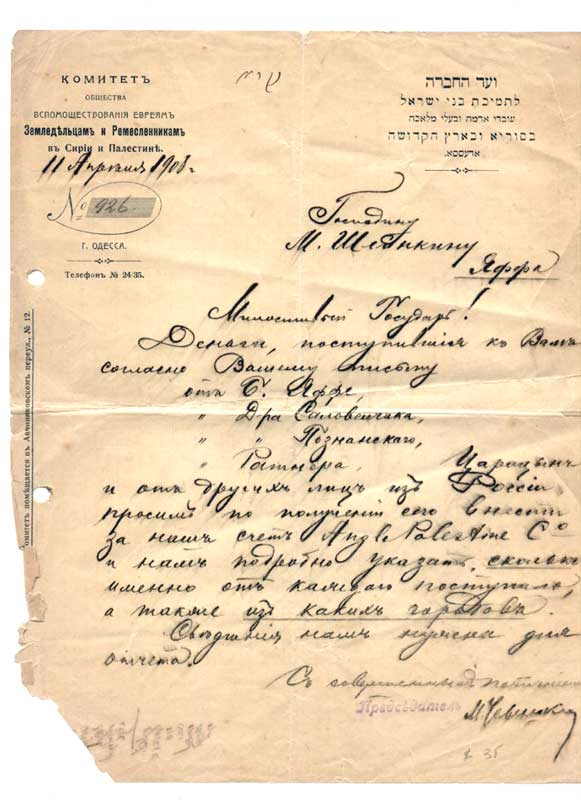 КОМИТЕТЪ
ОБЩЕСТВА
ВСПОМОЩЕСТВОВАНІЯ ЕВРЕЯМЪ
Земледѣльцамъ и Ремесленникамъ
въ Сиріи и Палестинѣ.
11 Апрѣля 1908 г.
№ 926
Г. ОДЕССА.
Телефонъ № 24-35.
ועד החברה
לתמיכת בני ישראל
עובדי אדמה ובעלי מלאכה
בסוריא ובארץ הקדושה
אדעססא.
Господину
М. Шейнкину
Яффа
Милостивый Государь!
Деньги, поступившія къ Вамъ
согласно Вашему письму
отъ Б. Яффе,
" Д-ра Саловейчика,
" " Познанскаго,
" Ратнера, Царицынъ
и отъ другихъ лицъ изъ Россіи
просимъ по полученіи сего внести
за нашъ счетъ Anglo Palestine Co
и намъ подробно указать, сколько
именно отъ каждаго поступило,
а также изъ какихъ городовъ.
Свѣдѣнія намъ нужны для
отчета.
Съ совершеннымъ
Предсѣдатель
омитетъ помѣщается въ Авчинниковскомъ переул., № 12.